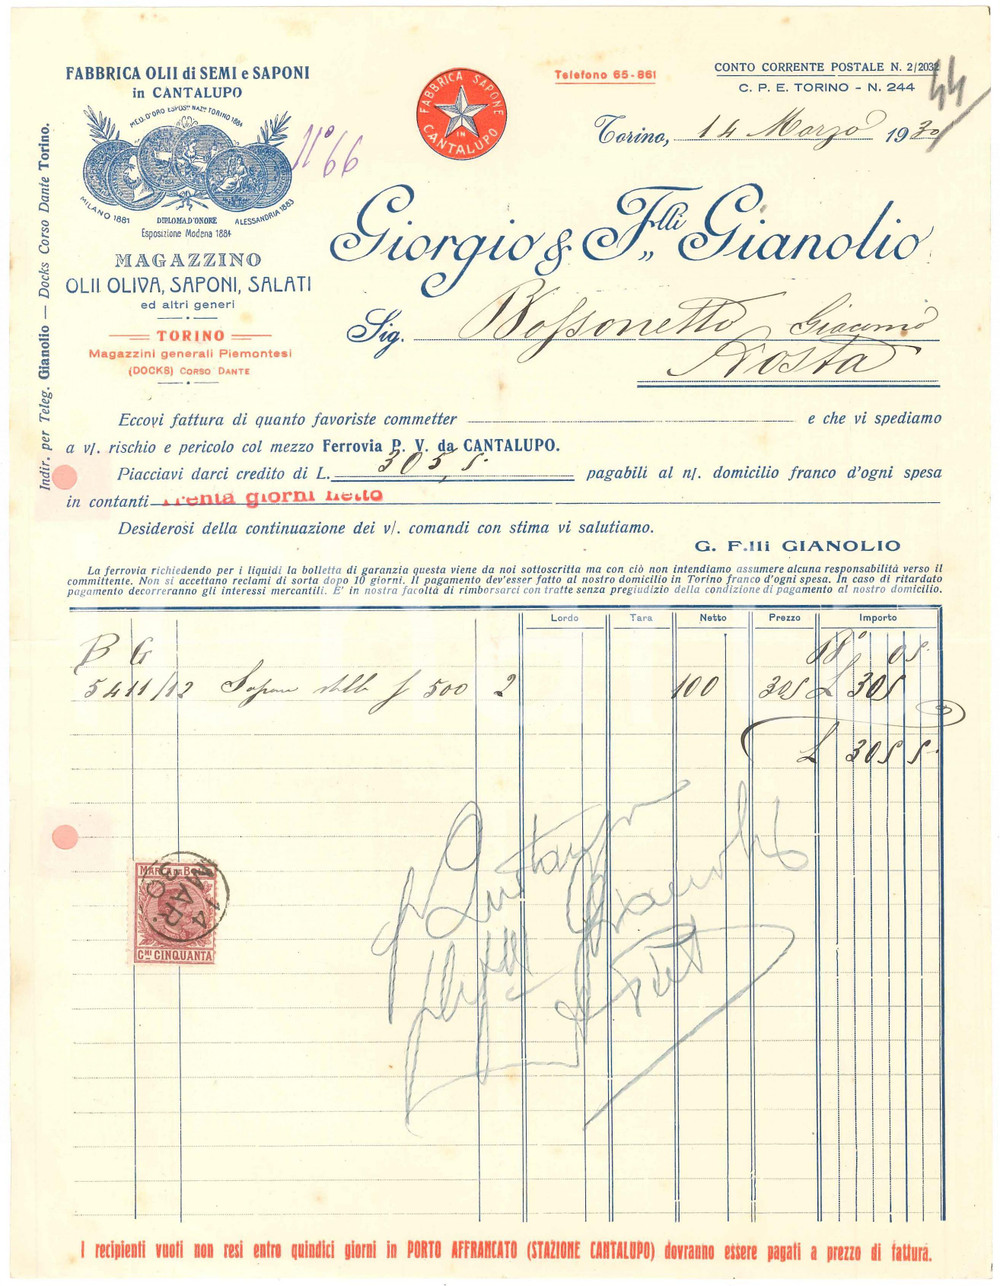 FABBRICA OLII di SEMI e SAPONI
in CANTALUPO
MED. D'ORO ESPOS. NAZ. TORINO 1884
MILANO 1881
DIPLOMA D'ONORE
ALESSANDRIA 1883
Esposizione Modena 1884
N° 66
MAGAZZINO
OLII OLIVA, SAPONI, SALATI
ed altri generi
TORINO
Magazzini generali Piemontesi
(DOCKS) CORSO DANTE
Indir. per Teleg. Gianolio — Docks Corso Dante Torino.
FABBRICA SAPONE
IN
CANTALUPO
Telefono 65-861
CONTO CORRENTE POSTALE N. 2/2032
C. P. E. TORINO - N. 244
44
Torino, 14 Marzo 1930
Giorgio & F.lli Gianolio
Sig. Bossonetto Giacomo
Nosta
Eccovi fattura di quanto favoriste commetter e che vi spediamo
a v/. rischio e pericolo col mezzo Ferrovia P. V. da CANTALUPO.
Piacciavi darci credito di L. 305,5 pagabili al n/. domicilio franco d'ogni spesa
in contanti Trenta giorni netto
Desiderosi della continuazione dei v/. comandi con stima vi salutiamo.
G. F.lli GIANOLIO
La ferrovia richiedendo per i liquidi la bolletta di garanzia questa viene da noi sottoscritta ma con ciò non intendiamo assumere alcuna responsabilità verso il
committente. Non si accettano reclami di sorta dopo 10 giorni. Il pagamento dev'esser fatto al nostro domicilio in Torino franco d'ogni spesa. In caso di ritardato
pagamento decorreranno gli interessi mercantili. E' in nostra facoltà di rimborsarci con tratte senza pregiudizio della condizione di pagamento al nostro domicilio.
Lordo Tara Netto Prezzo Importo
B G Bº 05
5411/12 Sapone stella g 500 2 100 305 L 305
L 305 5
MARCA DA BOLLO
14 MAR. 30
C.MI CINQUANTA
I recipienti vuoti non resi entro quindici giorni in PORTO AFFRANCATO (STAZIONE CANTALUPO) dovranno essere pagati a prezzo di fattura.